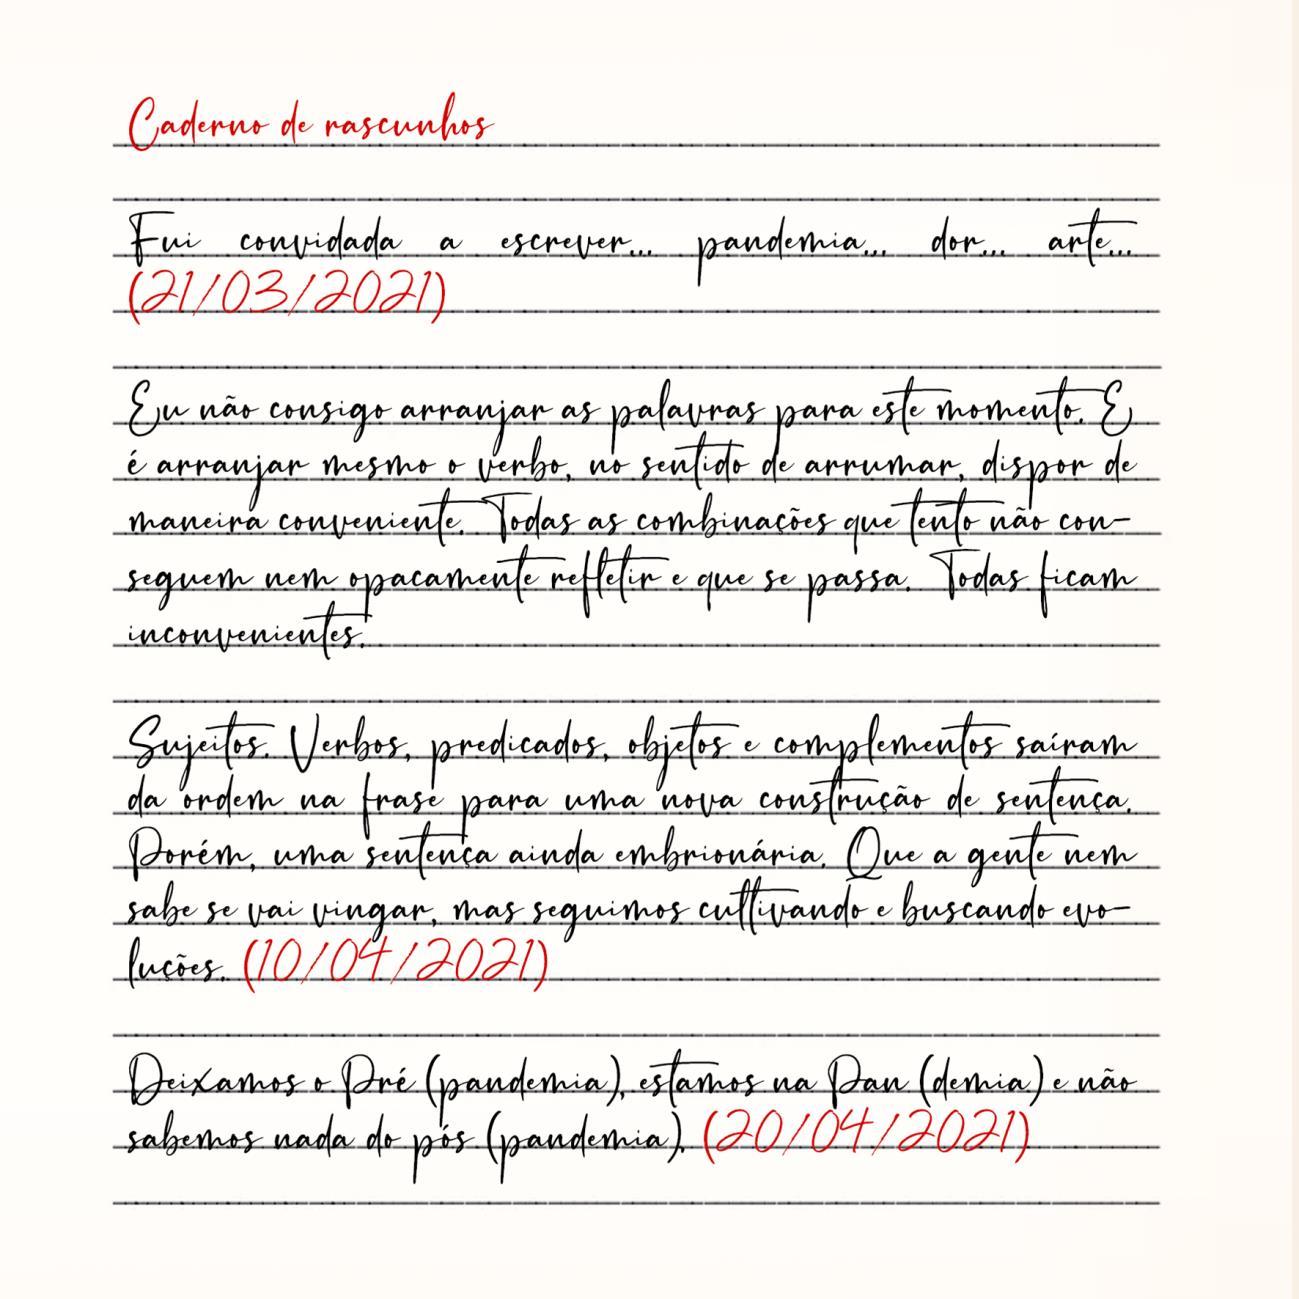 Caderno de rascunhos
Fui convidada a escrever... pandemia... dor... arte...
(21/03/2021)
Eu não consigo arranjar as palavras para este momento. E
é arranjar mesmo o verbo, no sentido de arrumar, dispor de
maneira conveniente. Todas as combinações que tento não con-
seguem nem opacamente refletir e que se passa. Todas ficam
inconvenientes.
Sujeitos. Verbos, predicados, objetos e complementos saíram
da ordem na frase para uma nova construção de sentença.
Porém, uma sentença ainda embrionária. Que a gente nem
sabe se vai vingar, mas seguimos cultivando e buscando evo-
luções. (10/04/2021)
Deixamos o Pré (pandemia), estamos na Pan (demia) e não
sabemos nada do pós (pandemia). (20/04/2021)